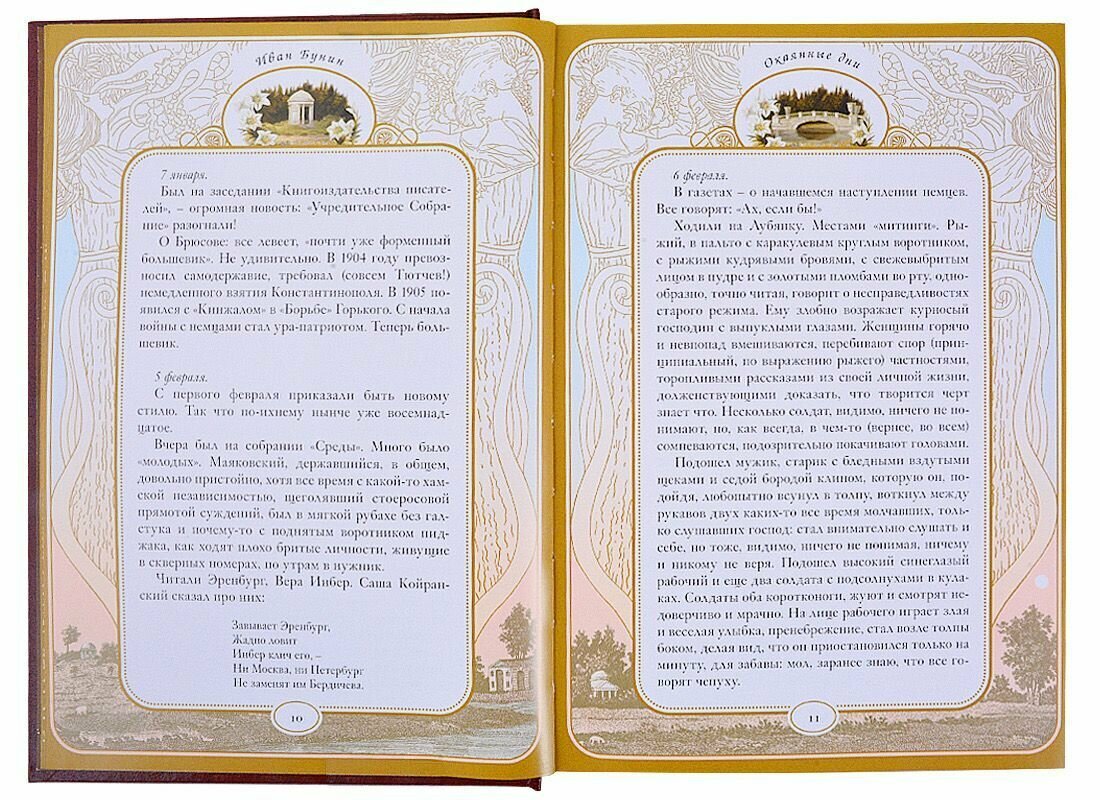 Иван Бунин
7 января.
Был на заседании «Книгоиздательства писате-
лей», – огромная новость: «Учредительное Собра-
ние» разогнали!
О Брюсове: все левеет, «почти уже форменный
большевик». Не удивительно. В 1904 году превоз-
носил самодержавие, требовал (совсем Тютчев!)
немедленного взятия Константинополя. В 1905 по-
явился с «Кинжалом» в «Борьбе» Горького. С начала
войны с немцами стал ура-патриотом. Теперь боль-
шевик.
5 февраля.
С первого февраля приказали быть новому
стилю. Так что по-ихнему нынче уже восемнад-
цатое.
Вчера был на собрании «Среды». Много было
«молодых». Маяковский, державшийся, в общем,
довольно пристойно, хотя все время с какой-то хам-
ской независимостью, щеголявший стоеросовой
прямотой суждений, был в мягкой рубахе без гал-
стука и почему-то с поднятым воротником пид-
жака, как ходят плохо бритые личности, живущие
в скверных номерах, по утрам в нужник.
Читали Эренбург, Вера Инбер. Саша Койран-
ский сказал про них:
Завывает Эренбург,
Жадно ловит
Инбер клич его, –
Ни Москва, ни Петербург
Не заменят им Бердичева.
10
Окаянные дни
6 февраля.
В газетах – о начавшемся наступлении немцев.
Все говорят: «Ах, если бы!»
Ходили на Лубянку. Местами «митинги». Ры-
жий, в пальто с каракулевым круглым воротником,
с рыжими кудрявыми бровями, с свежевыбритым
лицом в пудре и с золотыми пломбами во рту, одно-
образно, точно читая, говорит о несправедливостях
старого режима. Ему злобно возражает курносый
господин с выпуклыми глазами. Женщины горячо
и невпопад вмешиваются, перебивают спор (прин-
ципиальный, по выражению рыжего) частностями,
торопливыми рассказами из своей личной жизни,
долженствующими доказать, что творится черт
знает что. Несколько солдат, видимо, ничего не по-
нимают, но, как всегда, в чем-то (вернее, во всем)
сомневаются, подозрительно покачивают головами.
Подошел мужик, старик с бледными вздутыми
щеками и седой бородой клином, которую он, по-
дойдя, любопытно всунул в толпу, воткнул между
рукавов двух каких-то все время молчавших, толь-
ко слушавших господ: стал внимательно слушать и
себе, но тоже, видимо, ничего не понимая, ничему
и никому не веря. Подошел высокий синеглазый
рабочий и еще два солдата с подсолнухами в кула-
ках. Солдаты оба коротконоги, жуют и смотрят не-
доверчиво и мрачно. На лице рабочего играет злая
и веселая улыбка, пренебрежение, стал возле толпы
боком, делая вид, что он приостановился только на
минуту, для забавы: мол, заранее знаю, что все го-
ворят чепуху.
11